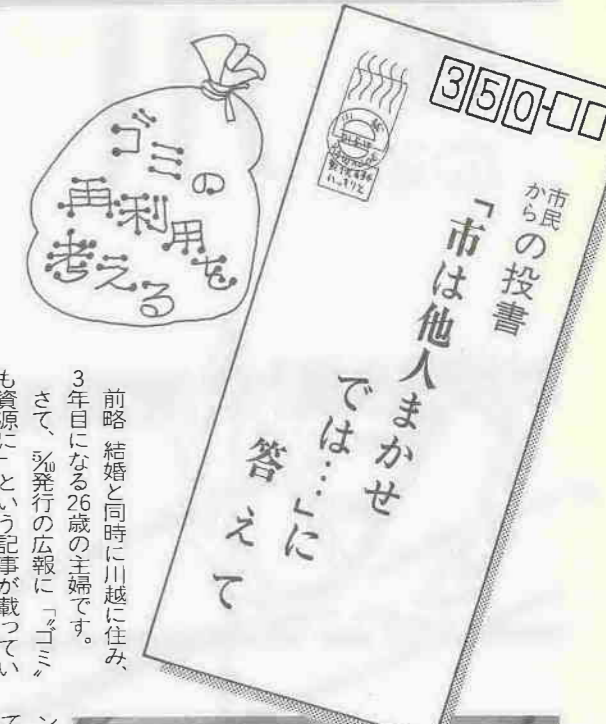 ゴミの
再利用を
考える
350-
市民
から
の投書
「市は他人まかせ
では…」に
答えて
前略 結婚と同時に川越に住み、
3年目になる26歳の主婦です。
さて、5/10発行の広報に「〝ゴミ〟
も資源に」という記事が載ってい